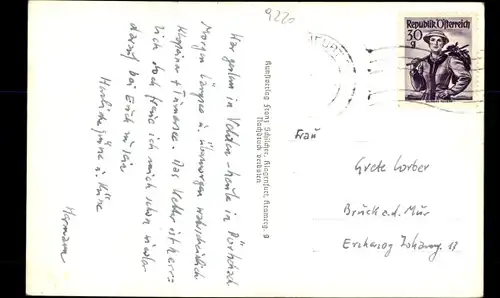 9220
War gestern in Velden – heute in Pörtschach
Morgen Längsee u. übermorgen wahrscheinlich
Klopeiner + Turnersee. Das Wetter ist herr-
lich doch freue ich mich schon wieder
darauf bei Euch zu sein
Herzliche Grüße u. Küsse
Hermann
Kunstverlag Franz Schilcher, Klagenfurt, Kramerg. 9
Nachdruck verboten
Republik Österreich
30
g
Frau
Grete Lorber
Bruck a.d. Mur
Erzherzog Johanng. 13